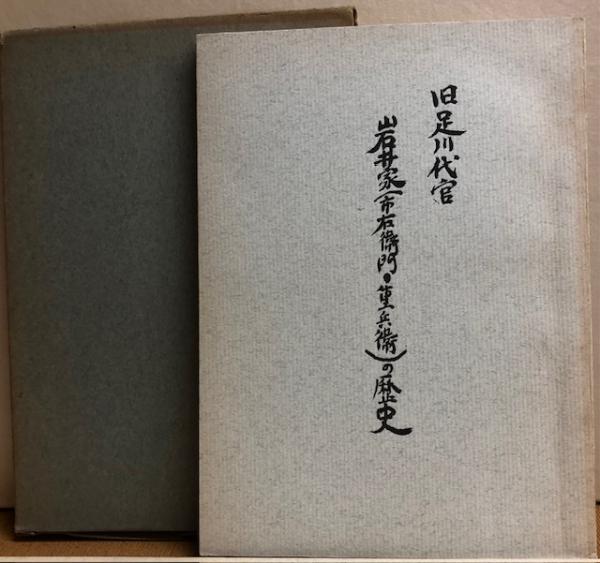 旧足川代官
岩井家(市右衛門・重兵衛)の歴史